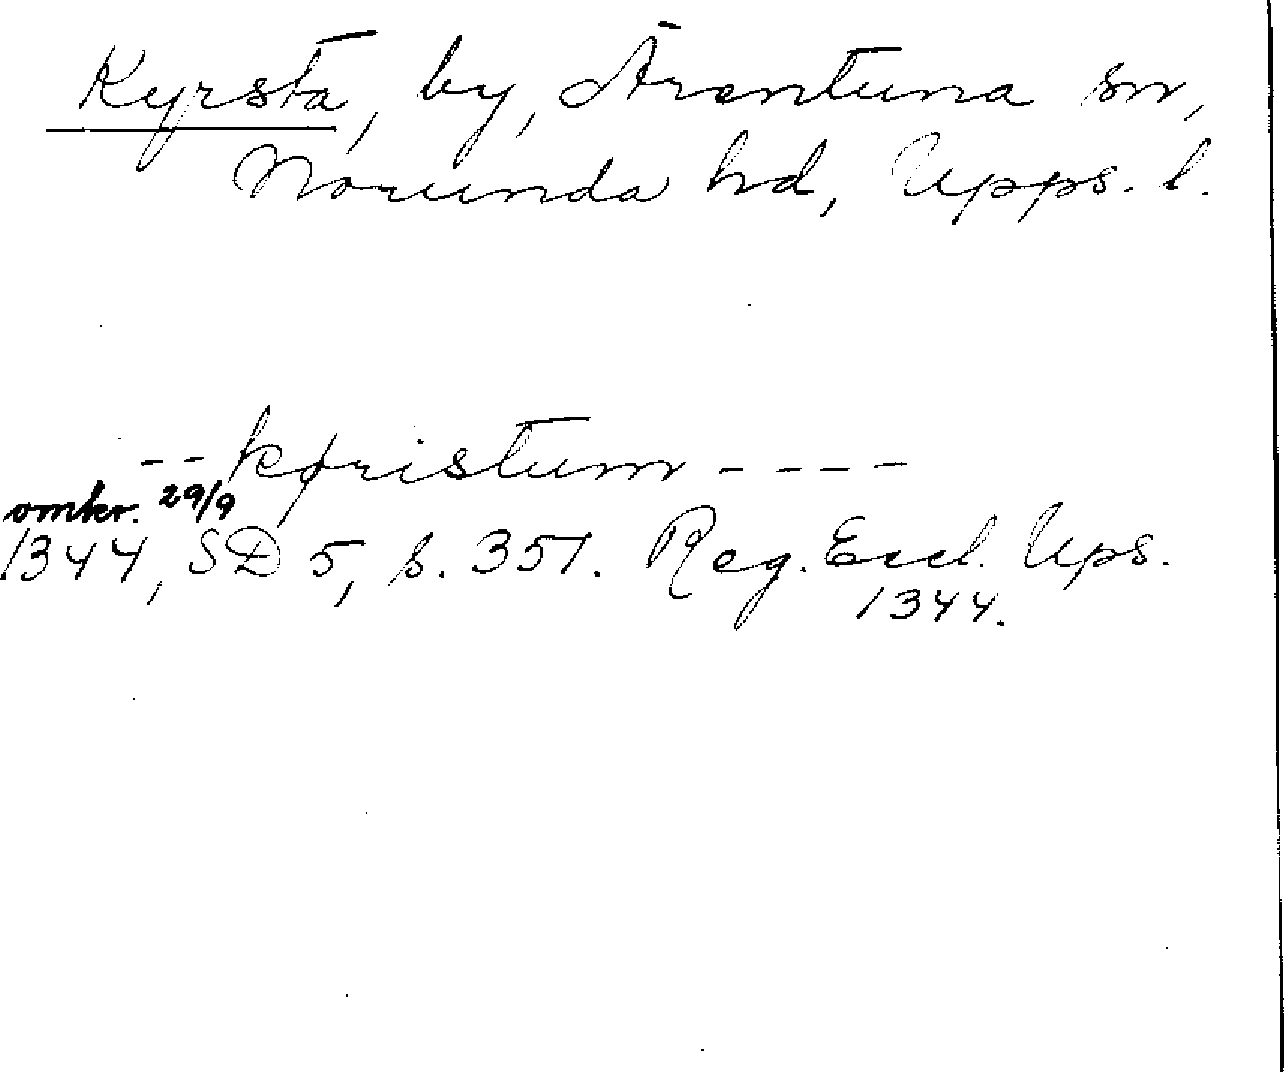 Kyrsta, by, Ärentuna sn,
Norunda hd, Upps. l.
-- køristum ----
omkr. 29/9
1344, SD 5, s. 351. Reg. Eccl. Ups.
1344.